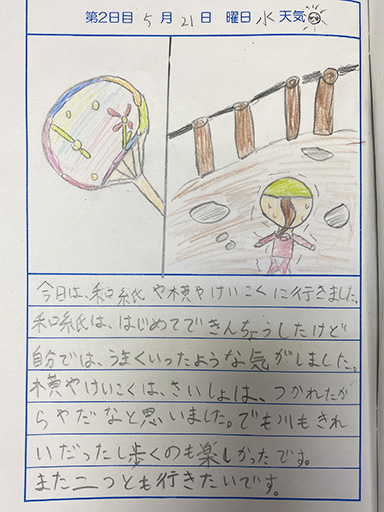 第2日目 5月21日 曜日 水 天気
今日は、和紙や横やけいこくに行きました。
和紙は、はじめてできんちょうしたけど
自分では、うまくいったような気がしました。
横やけいこくは、さいしょは、つかれたか
らやだなと思いました。でも川もきれ
いだったし歩くのも楽しかったです。
また二つとも行きたいです。